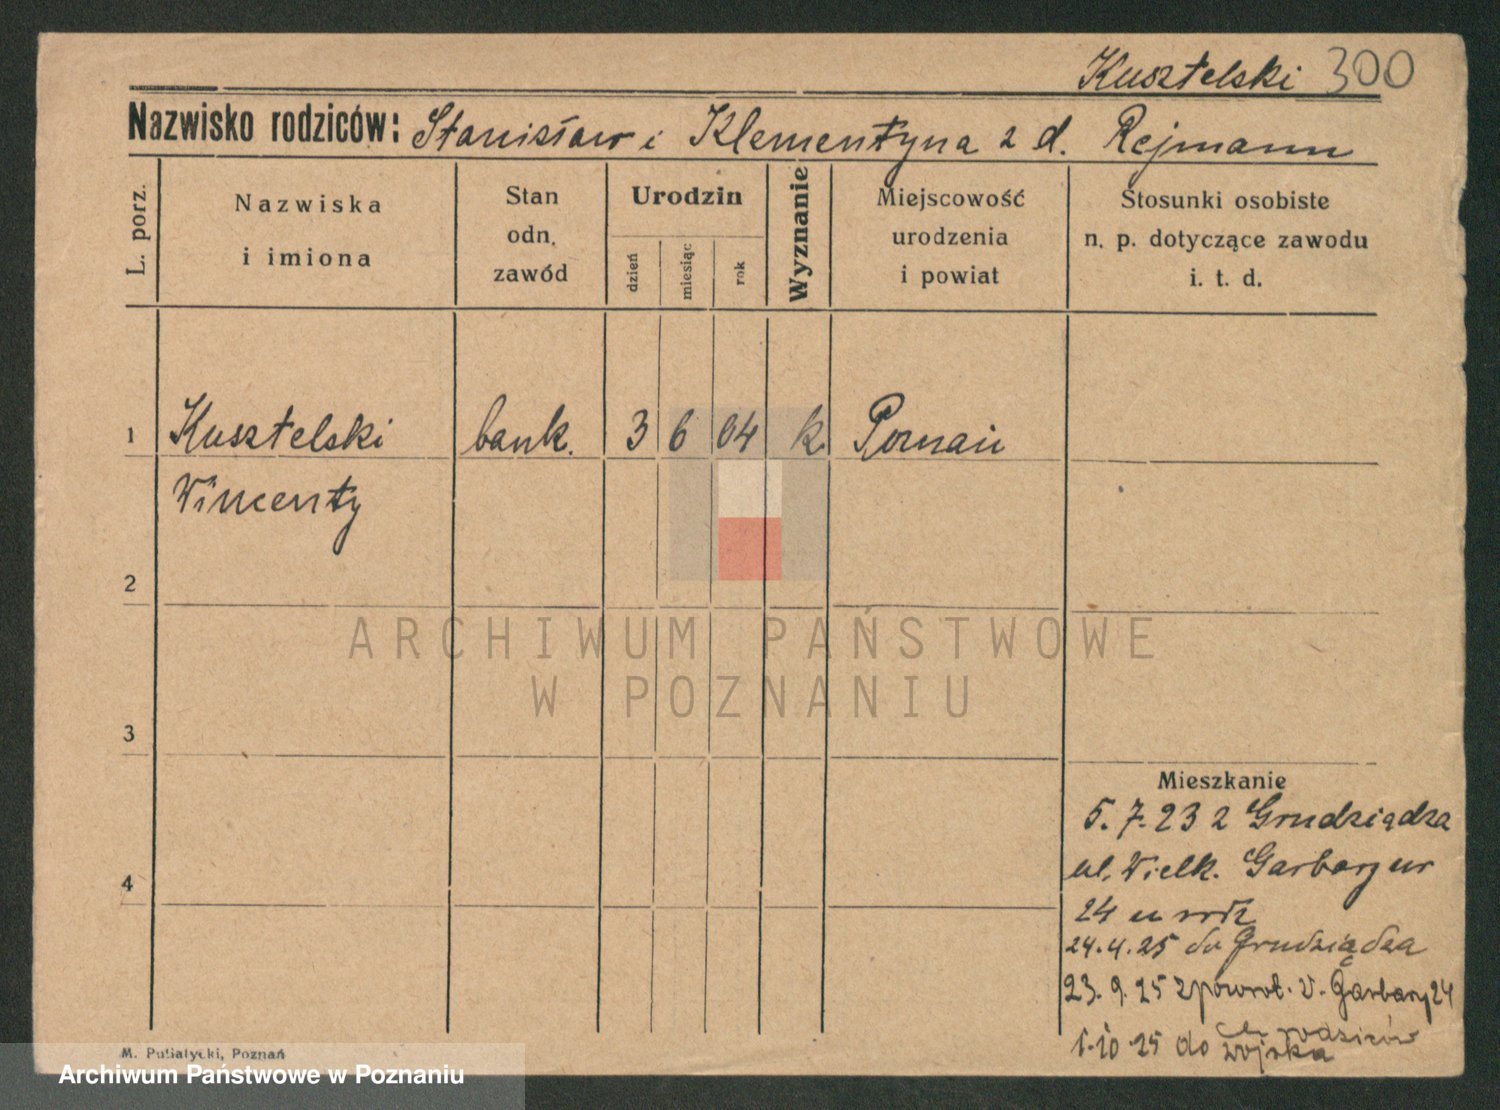 Kusztelski 300
Nazwisko rodziców: Stanisław i Klementyna z d. Rejmann
L. porz.
Nazwiska
i imiona
Stan
odn.
zawód
Urodzin
dzień
miesiąc
rok
Wyznanie
Miejscowość
urodzenia
i powiat
Stosunki osobiste
n. p. dotyczące zawodu
i. t. d.
1 Kusztelski bank. 3 6 04 k. Poznań
Wincenty
2
ARCHIWUM PAŃSTWOWE
W POZNANIU
3
Mieszkanie
5. 7. 23 z Grudziądza
ul. Wielk. Garbary nr
4
24 u rodz
24.4.25 do Grudziądza
23. 9. 25 zpowrot. V. Garbary 24
rodziców
1.10.25 do wojska
M. Putiatycki, Poznań
Archiwum Państwowe w Poznaniu